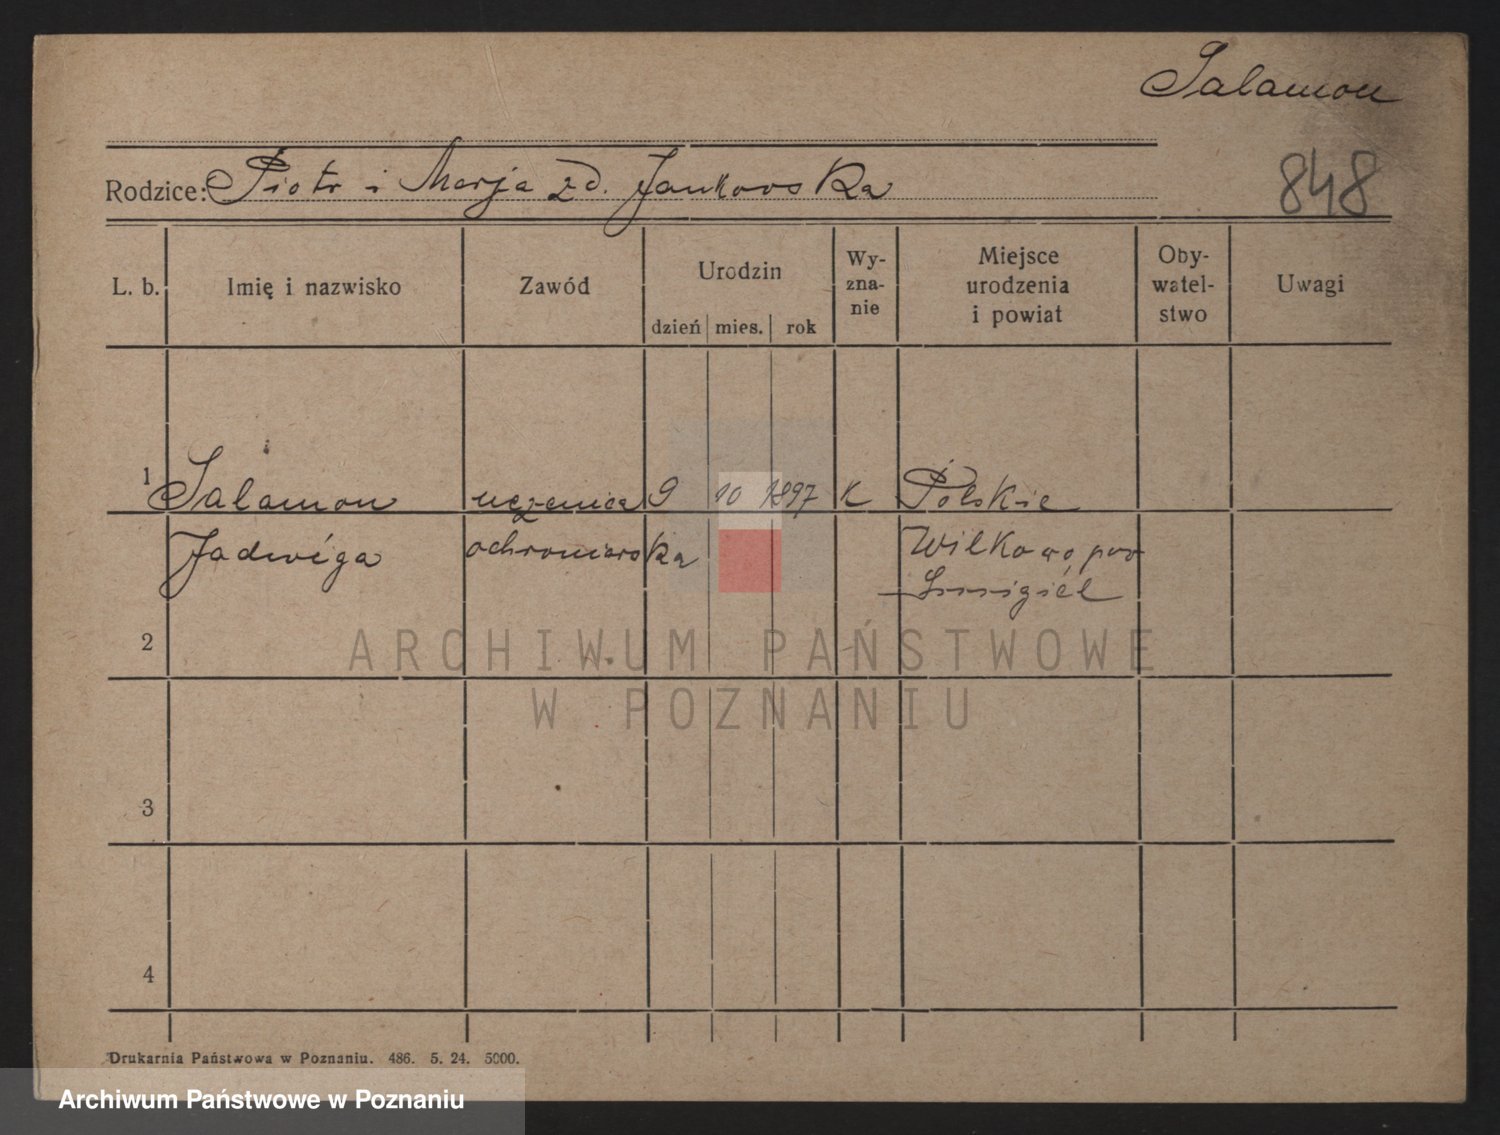 Salamon
Rodzice: Piotr i Marja z d. Jankowska
848
L. b.
Imię i nazwisko
Zawód
Urodzin
dzień mies. rok
Wy-
zna-
nie
Miejsce
urodzenia
i powiat
Oby-
watel-
stwo
Uwagi
1 Salamon uczenica 9 10 1897 K Polskie
Jadwiga ochroniarska Wilkowo pow
Śmigiel
2
ARCHIWUM PAŃSTWOWE
W POZNANIU
3
4
Drukarnia Państwowa w Poznaniu. 486. 5. 24. 5000.
Archiwum Państwowe w Poznaniu